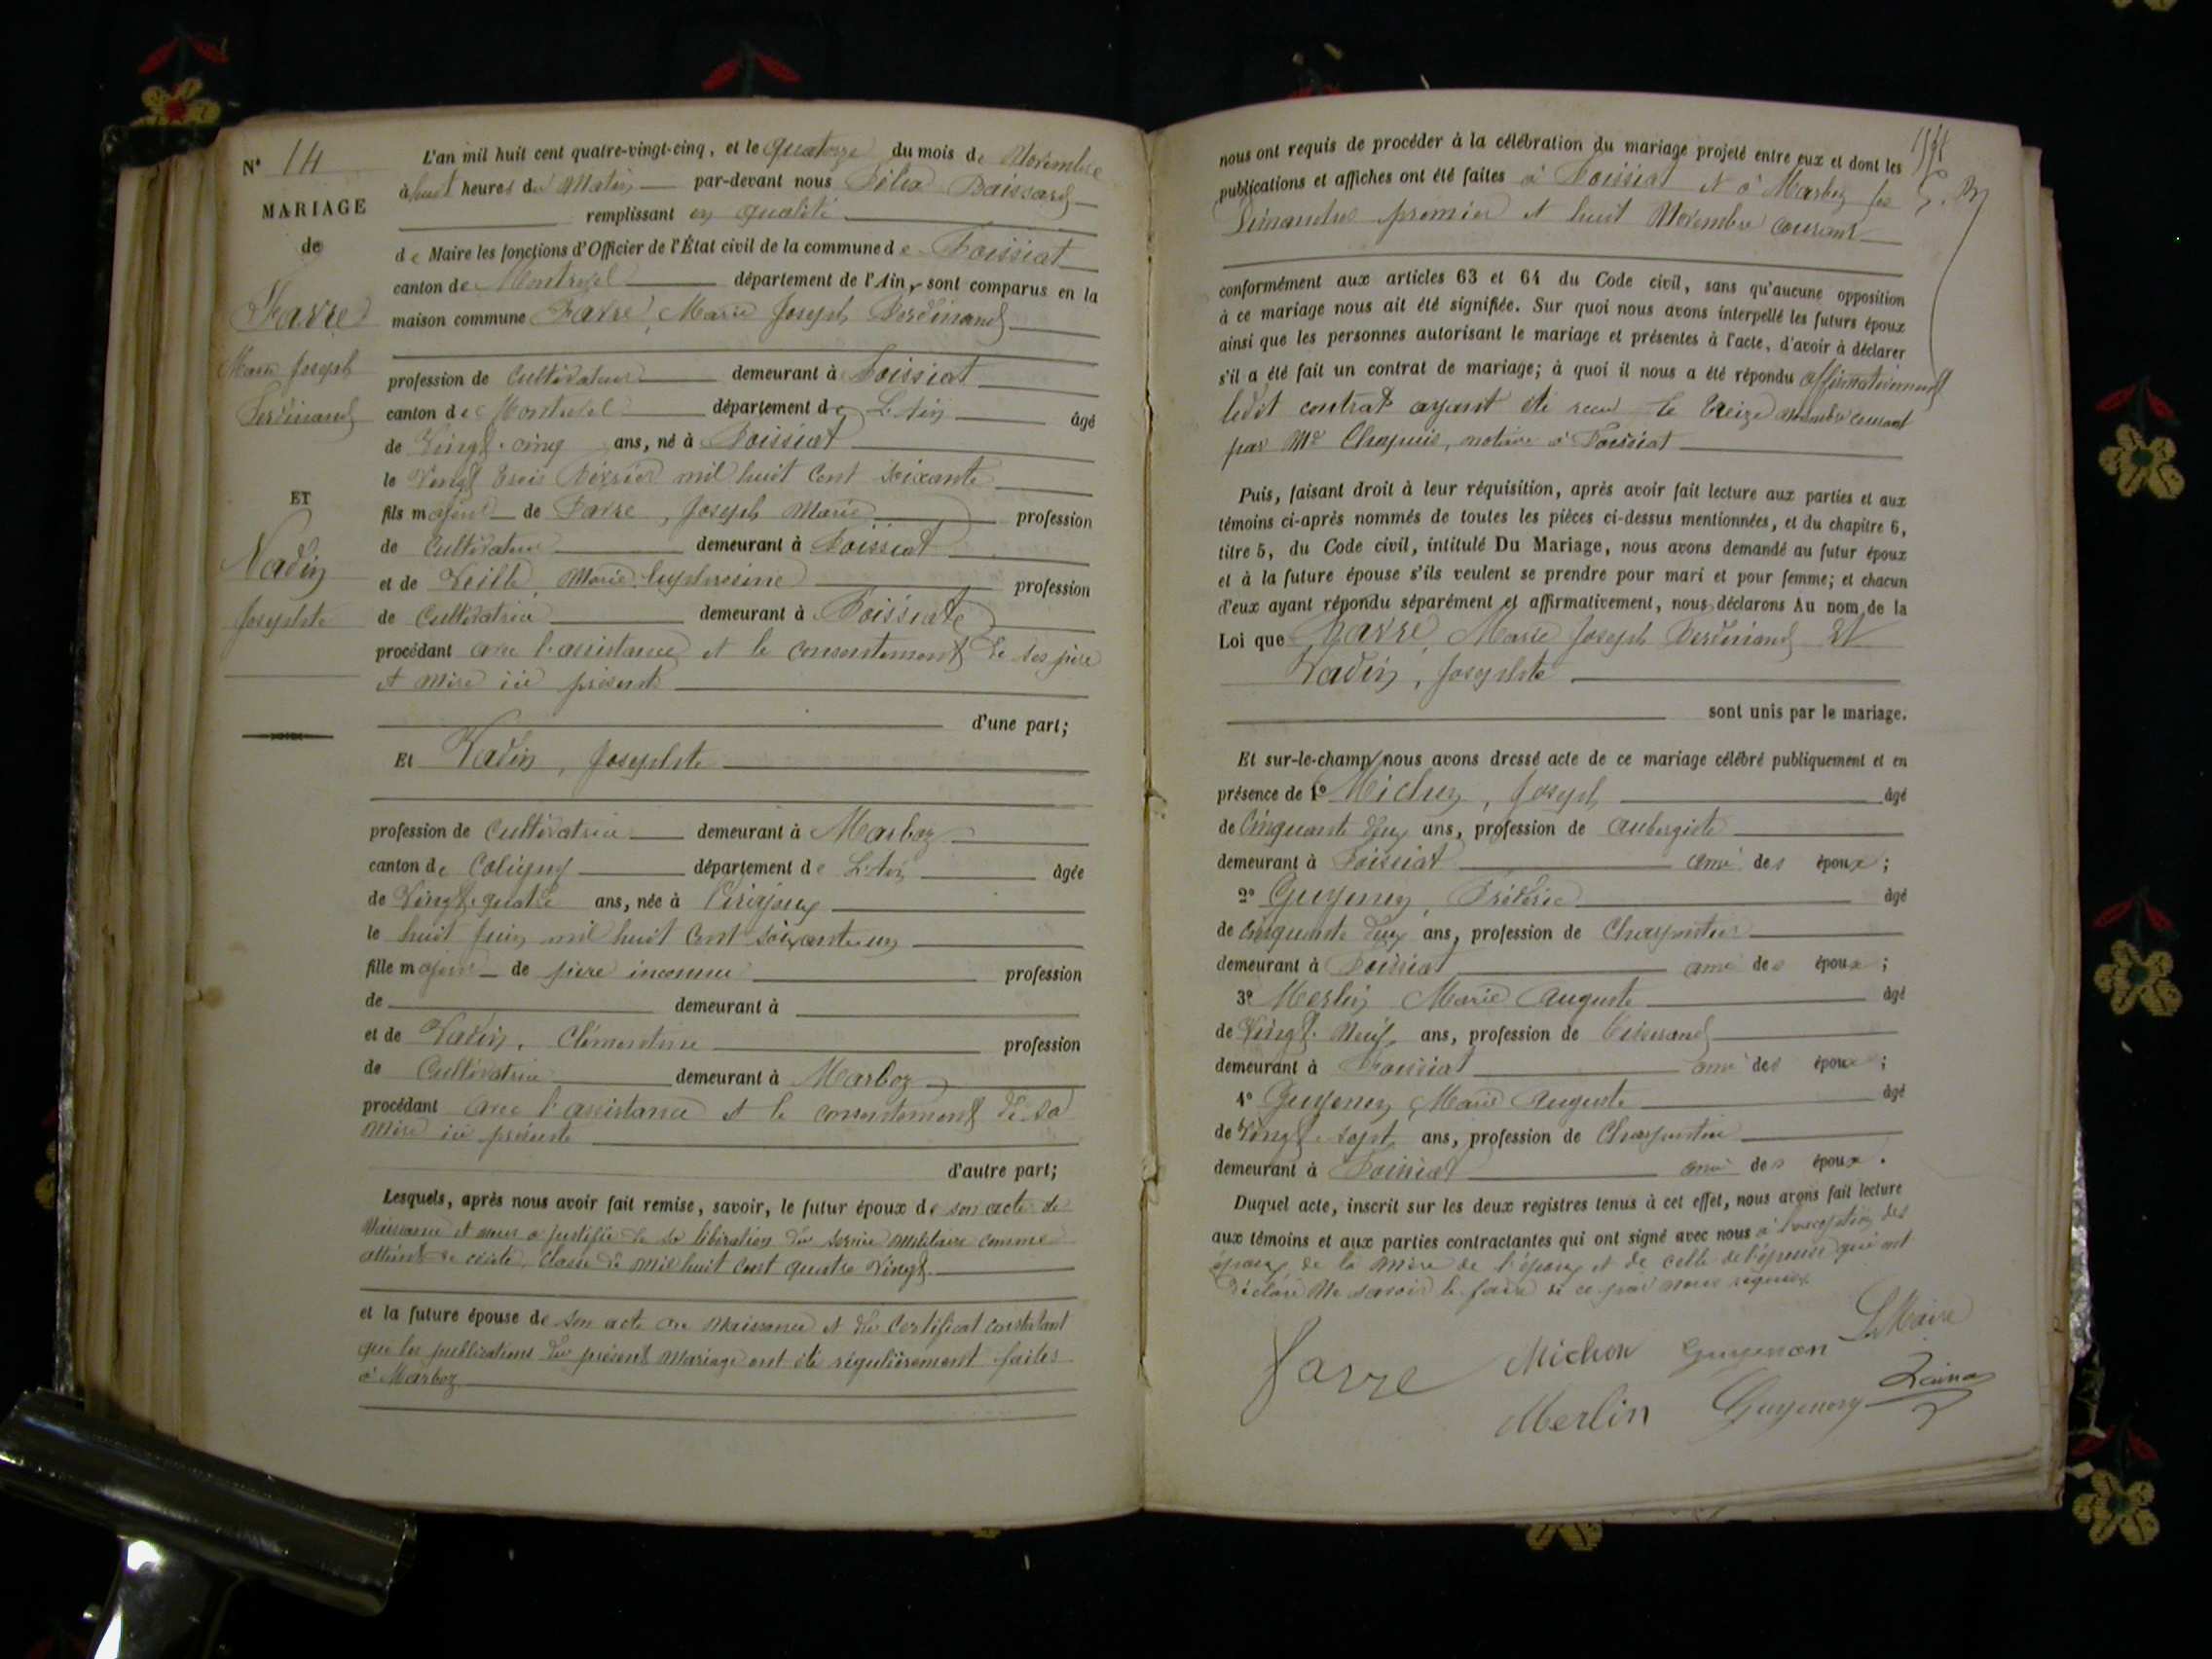 N° 14
MARIAGE
de
Favre
Marie Joseph
Ferdinand
ET
Vadin
Josephte
L'an mil huit cent quatre-vingt-cinq, et le quatorze du mois de Novembre
à huit heures du Matin par-devant nous Félix
remplissant en qualité
de Maire les fonctions d'Officier de l'État civil de la commune de Foissiat
canton de Montrevel département de l'Ain, sont comparus en la
maison commune Favre, Marie Joseph Ferdinand
profession de Cultivateur demeurant à Foissiat
canton de Montrevel département de L'Ain âgé
de Vingt-cinq ans, né à Foissiat
le Vingt trois Février mil huit Cent soixante
fils majeur de Favre, Joseph Marie profession
de Cultivateur demeurant à Foissiat
et de Marie profession
de Cultivatrice demeurant à Foissiat
procédant avec l'assistance et le consentement de ses père
et mère ici présents
d'une part;
Et Vadin, Josephte
profession de Cultivatrice demeurant à Marboz
canton de Coligny département de L'Ain âgée
de Vingt-quatre ans, née à
le huit Juin mil huit Cent soixante un
fille majeure de père inconnu profession
de demeurant à
et de Vadin, Clémentine profession
de Cultivatrice demeurant à Marboz
procédant avec l'assistance et le consentement de sa
mère ici présente
d'autre part;
Lesquels, après nous avoir fait remise, savoir, le futur époux de son acte de
Naissance et nous a justifié de sa libération du service militaire comme
atteint de cécité, classe de mil huit Cent quatre Vingt
et la future épouse de son acte de Naissance et du Certificat constatant
que les publications du présent mariage ont été régulièrement faites
à Marboz
nous ont requis de procéder à la célébration du mariage projeté entre eux et dont les
publications et affiches ont été faites à Foissiat et à Marboz les
Dimanches premier et huit Novembre courant
conformément aux articles 63 et 64 du Code civil, sans qu'aucune opposition
à ce mariage nous ait été signifiée. Sur quoi nous avons interpellé les futurs époux
ainsi que les personnes autorisant le mariage et présentes à l'acte, d'avoir à déclarer
s'il a été fait un contrat de mariage; à quoi il nous a été répondu affirmativement
ledit contrat ayant été reçu le treize novembre courant
par Me Chapuis, notaire à Foissiat
Puis, faisant droit à leur réquisition, après avoir fait lecture aux parties et aux
témoins ci-après nommés de toutes les pièces ci-dessus mentionnées, et du chapitre 6,
titre 5, du Code civil, intitulé Du Mariage, nous avons demandé au futur époux
et à la future épouse s'ils veulent se prendre pour mari et pour femme; et chacun
d'eux ayant répondu séparément et affirmativement, nous déclarons Au nom de la
Loi que Favre, Marie Joseph Ferdinand Et
Vadin, Josephte
sont unis par le mariage.
Et sur-le-champ nous avons dressé acte de ce mariage célébré publiquement et en
présence de 1° Michon, Joseph âgé
de Cinquante deux ans, profession de aubergiste
demeurant à Foissiat ami des époux;
2° Guyenon, Frédéric âgé
de Cinquante deux ans, profession de Charpentier
demeurant à Foissiat ami des époux;
3° Merlin Marie Auguste âgé
de Vingt-Neuf ans, profession de tisserand
demeurant à Foissiat ami des époux;
4° Guyenon, Marie Auguste âgé
de Vingt-sept ans, profession de Charpentier
demeurant à Foissiat ami des époux.
Duquel acte, inscrit sur les deux registres tenus à cet effet, nous avons fait lecture
aux témoins et aux parties contractantes qui ont signé avec nous à l'exception des
époux, de la mère de l'époux et de celle de l'épouse qui ont
déclaré ne savoir le faire de ce par nous requis.
Le Maire
Favre Michon Guyenon
Merlin Guyenon